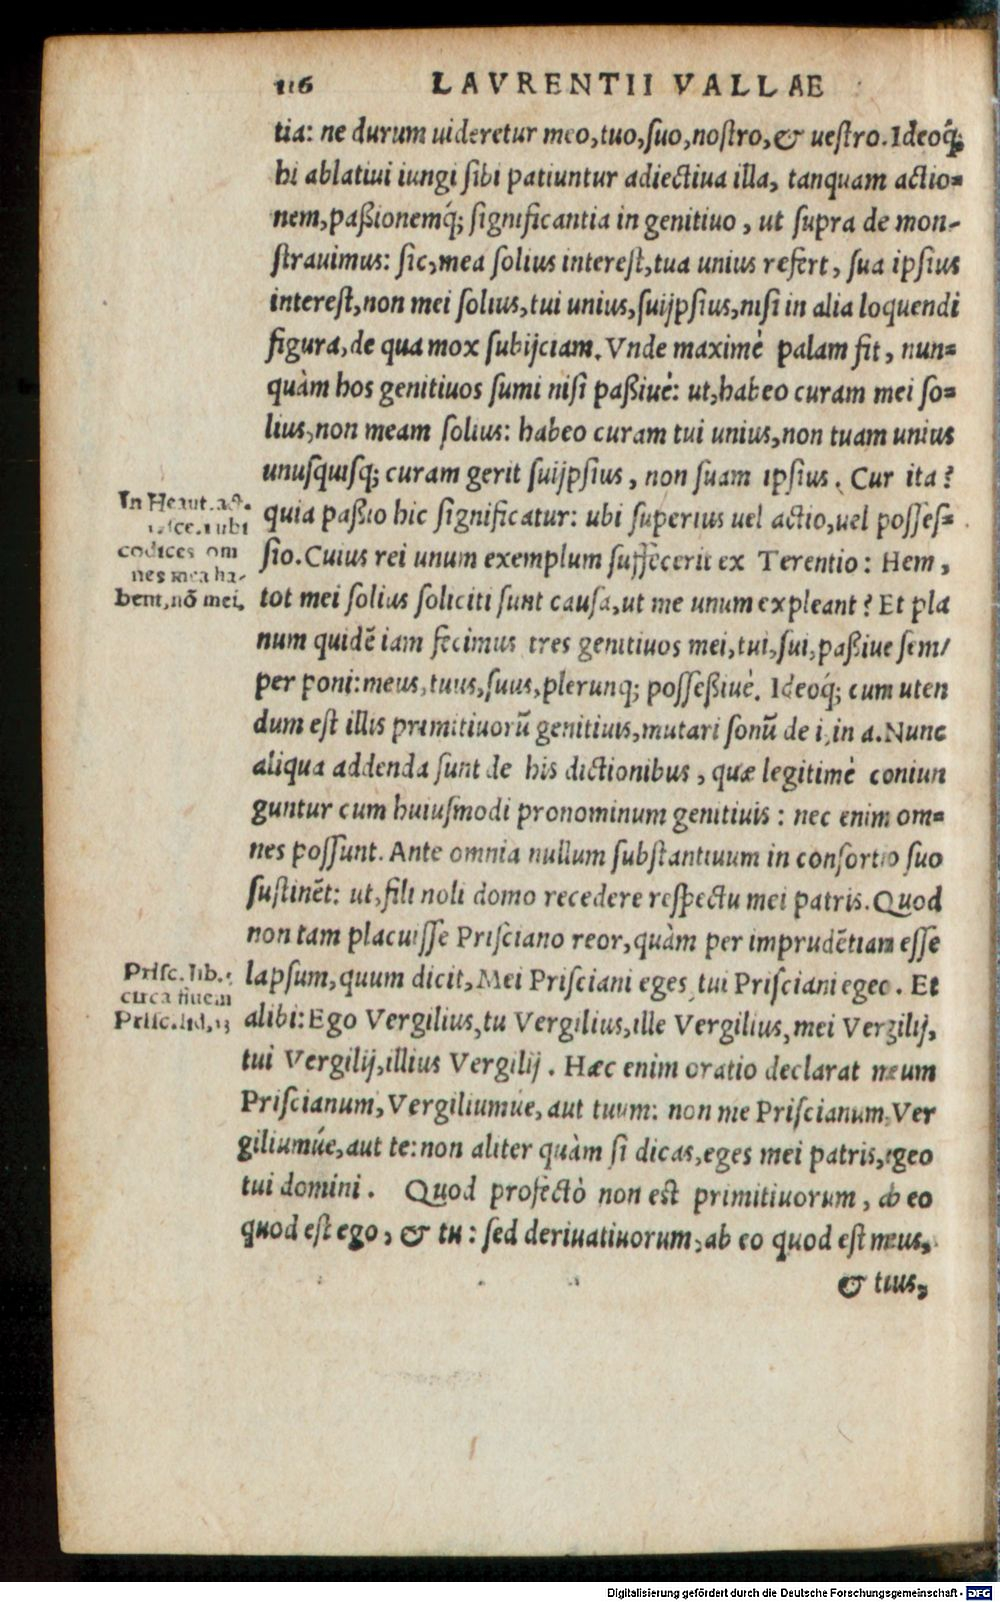 116 LAVRENTII VALLAE
tia: ne durum uideretur meo, tuo, suo, nostro, & uestro. Ideoq́;
hi ablatiui iungi sibi patiuntur adiectiua illa, tanquam actio=
nem, paßionemq́; significantia in genitiuo, ut supra de mon-
strauimus: sic, mea solius interest, tua unius refert, sua ipsius
interest, non mei solius, tui unius, suijpsius, nisi in alia loquendi
figura, de qua mox subijciam. Vnde maximè palam fit, nun=
quàm hos genitiuos sumi nisi paßiuè: ut, habeo curam mei so=
lius, non meam solius: habeo curam tui unius, non tuam unius
unusquisq; curam gerit suijpsius, non suam ipsius. Cur ita?
quia paßio hic significatur: ubi superius uel actio, uel posses=
sio. Cuius rei unum exemplum suffecerit ex Terentio: Hem,
tot mei solius soliciti sunt causa, ut me unum expleant? Et pla
num quidē iam fecimus tres genitiuos mei, tui, sui, paßiue sem/
per poni: meus, tuus, suus, plerunq; posseßiuè. Ideoq́; cum uten
dum est illis primitiuorū genitiuis, mutari sonū de i, in a. Nunc
aliqua addenda sunt de his dictionibus, quæ legitimè coniun
guntur cum huiusmodi pronominum genitiuis: nec enim om=
nes possunt. Ante omnia nullum substantiuum in consortio suo
sustinēt: ut, fili noli domo recedere respectu mei patris. Quod
non tam placuisse Prisciano reor, quàm per imprudētiam esse
lapsum, quum dicit, Mei Prisciani eges, tui Prisciani egeo. Et
alibi: Ego Vergilius, tu Vergilius, ille Vergilius, mei Vergilij,
tui Vergilij, illius Vergilij. Hæc enim oratio declarat meum
Priscianum, Vergiliumúe, aut tuum: non me Priscianum, Ver
giliumúe, aut te: non aliter quàm si dicas, eges mei patris, egeo
tui domini. Quod profectò non est primitiuorum, ab eo
quod est ego, & tu: sed deriuatiuorum, ab eo quod est meus,
& tuus,
In Heaut. act.
ubi
codices om
nes mea ha-
bent, nō mei.
Prisc. lib.
circa finem
Prisc. lid, 13
Digitalisierung gefördert durch die Deutsche Forschungsgemeinschaft - DFG